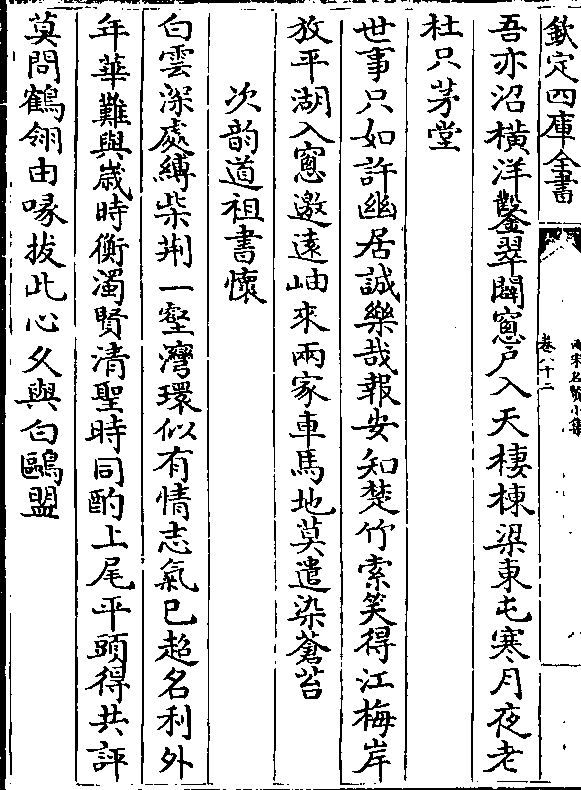 欽定四庫全書
兩宋名賢小集
卷八十二
吾亦沼橫洋鑿翠闢窻戶入天棲棟梁東屯寒月夜老
杜只茅堂
世事只如許幽居誠樂哉報安知楚竹索笑得江梅岸
放平湖入窻邀遠岫來兩家車馬地莫遣染蒼苔
次韵道祖書懷
白雲深處縛柴荆一壑灣環似有情志氣已超名利外
年華難與歲時衡濁賢清聖時同酌上尾平頭得共評
莫問鶴翎由喙拔此心久與白鷗盟